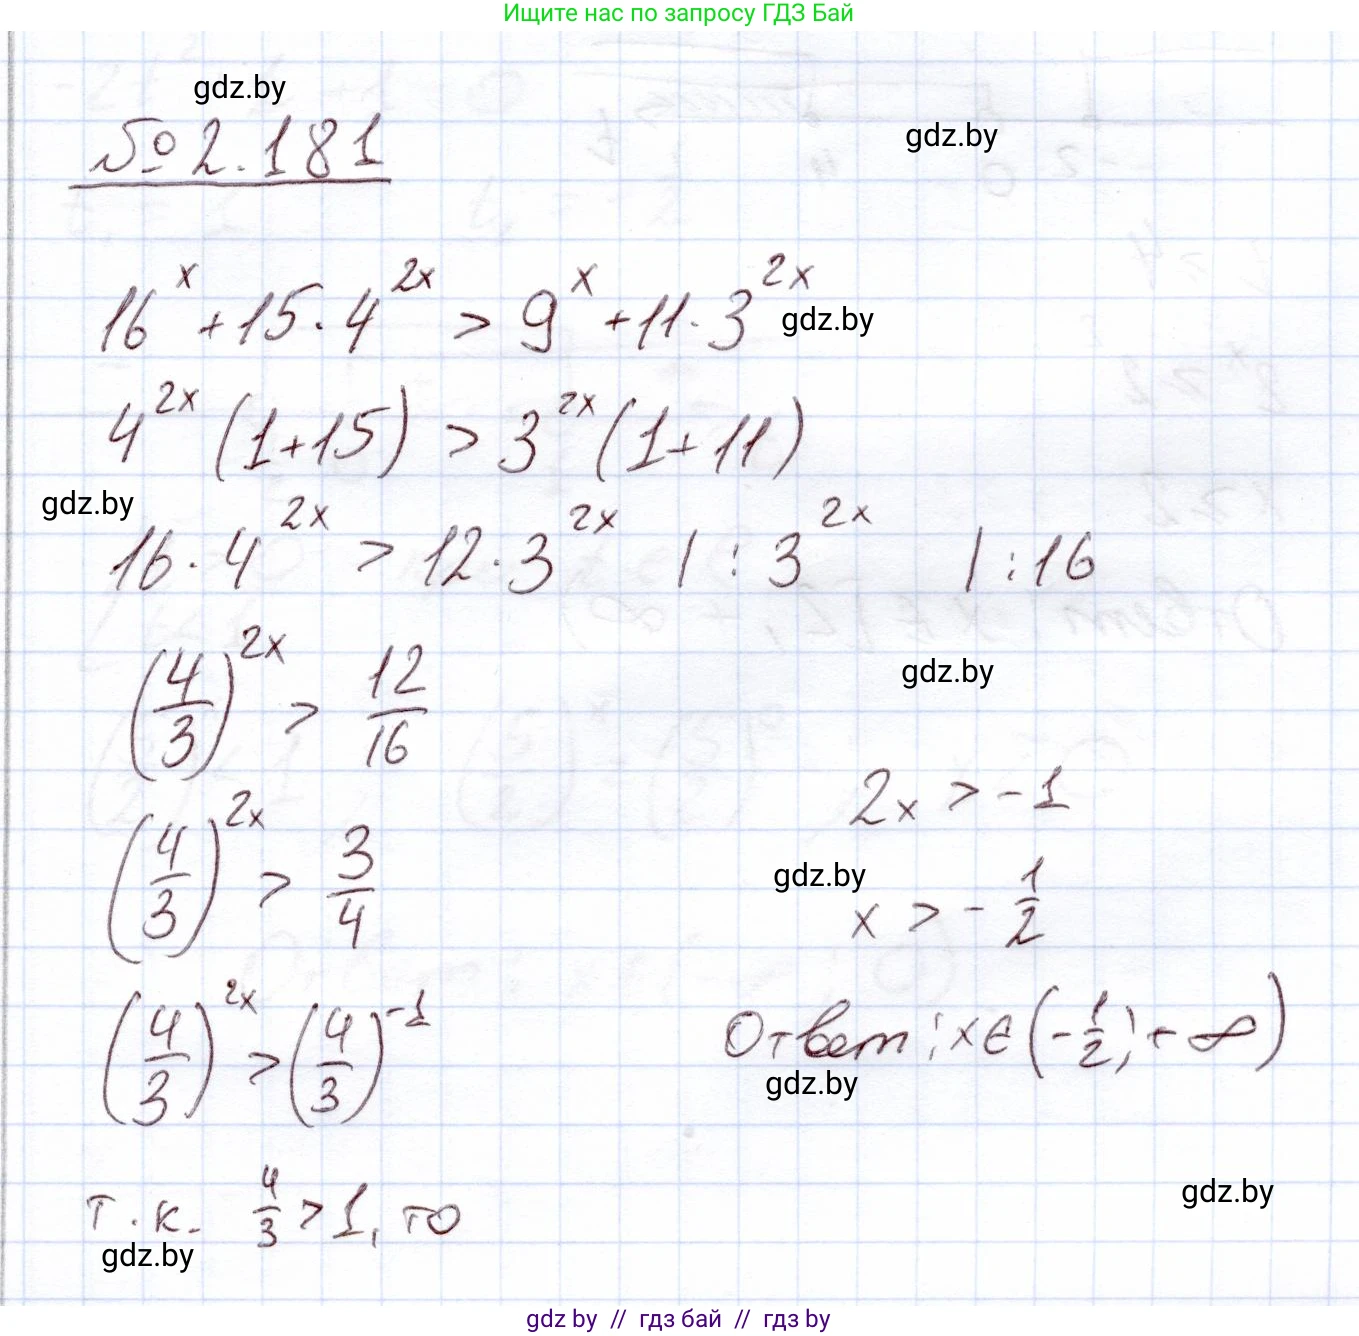 Ищите нас по запросу ГДЗ Бай
gdz.by
№ 2.181
gdz.by
16^x + 15 · 4^{2x} > 9^x + 11 · 3^{2x}
gdz.by
4^{2x} (1+15) > 3^{2x} (1+11)
gdz.by
16 · 4^{2x} > 12 · 3^{2x} | : 3^{2x} | : 16
(4/3)^{2x} > 12/16
gdz.by
(4/3)^{2x} > 3/4
(4/3)^{2x} > (4/3)^{-1}
т.к. 4/3 > 1, то
gdz.by
2x > -1
gdz.by
x > - 1/2
Ответ: x ∈ (-1/2; +∞)
gdz.by
gdz.by
gdz.by // гдз бай // гдз by